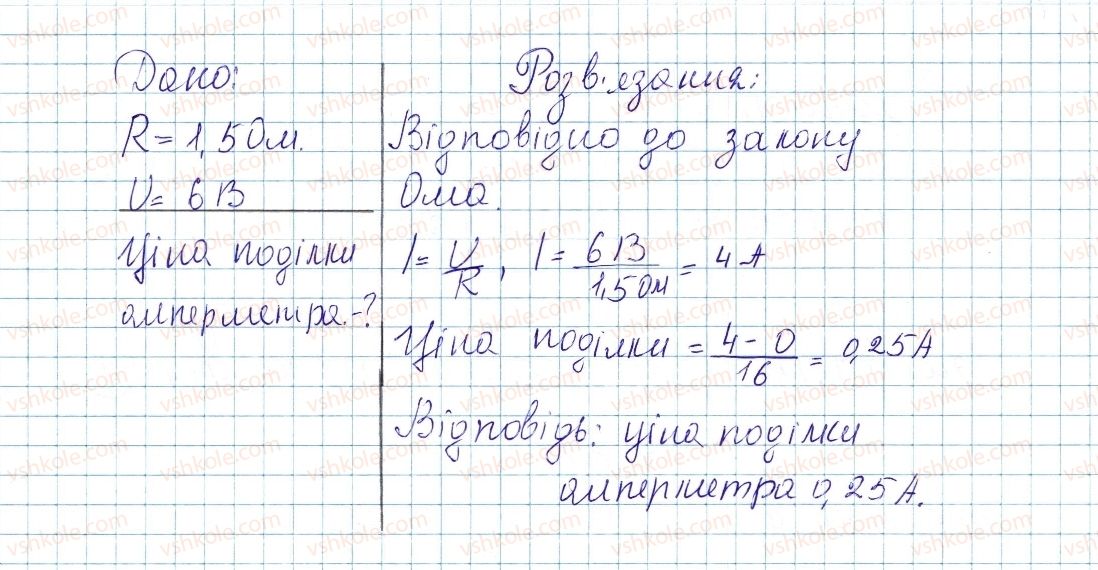 Дано:
R = 1,5 Ом.
U = 6 В
Ціна поділки
амперметра - ?
Розв'язання:
Відповідно до закону
Ома.
I = U/R, I = 6 В/1,5 Ом = 4 А
Ціна поділки = 4 - 0/16 = 0,25 А
Відповідь: ціна поділки
амперметра 0,25 А.
vshkole.com